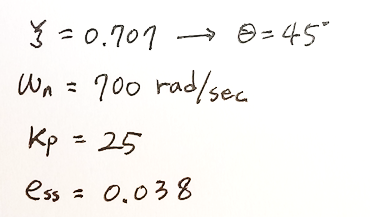 ξ = 0.707 → θ = 45°
ωn = 700 rad/sec
Kp = 25
ess = 0.038